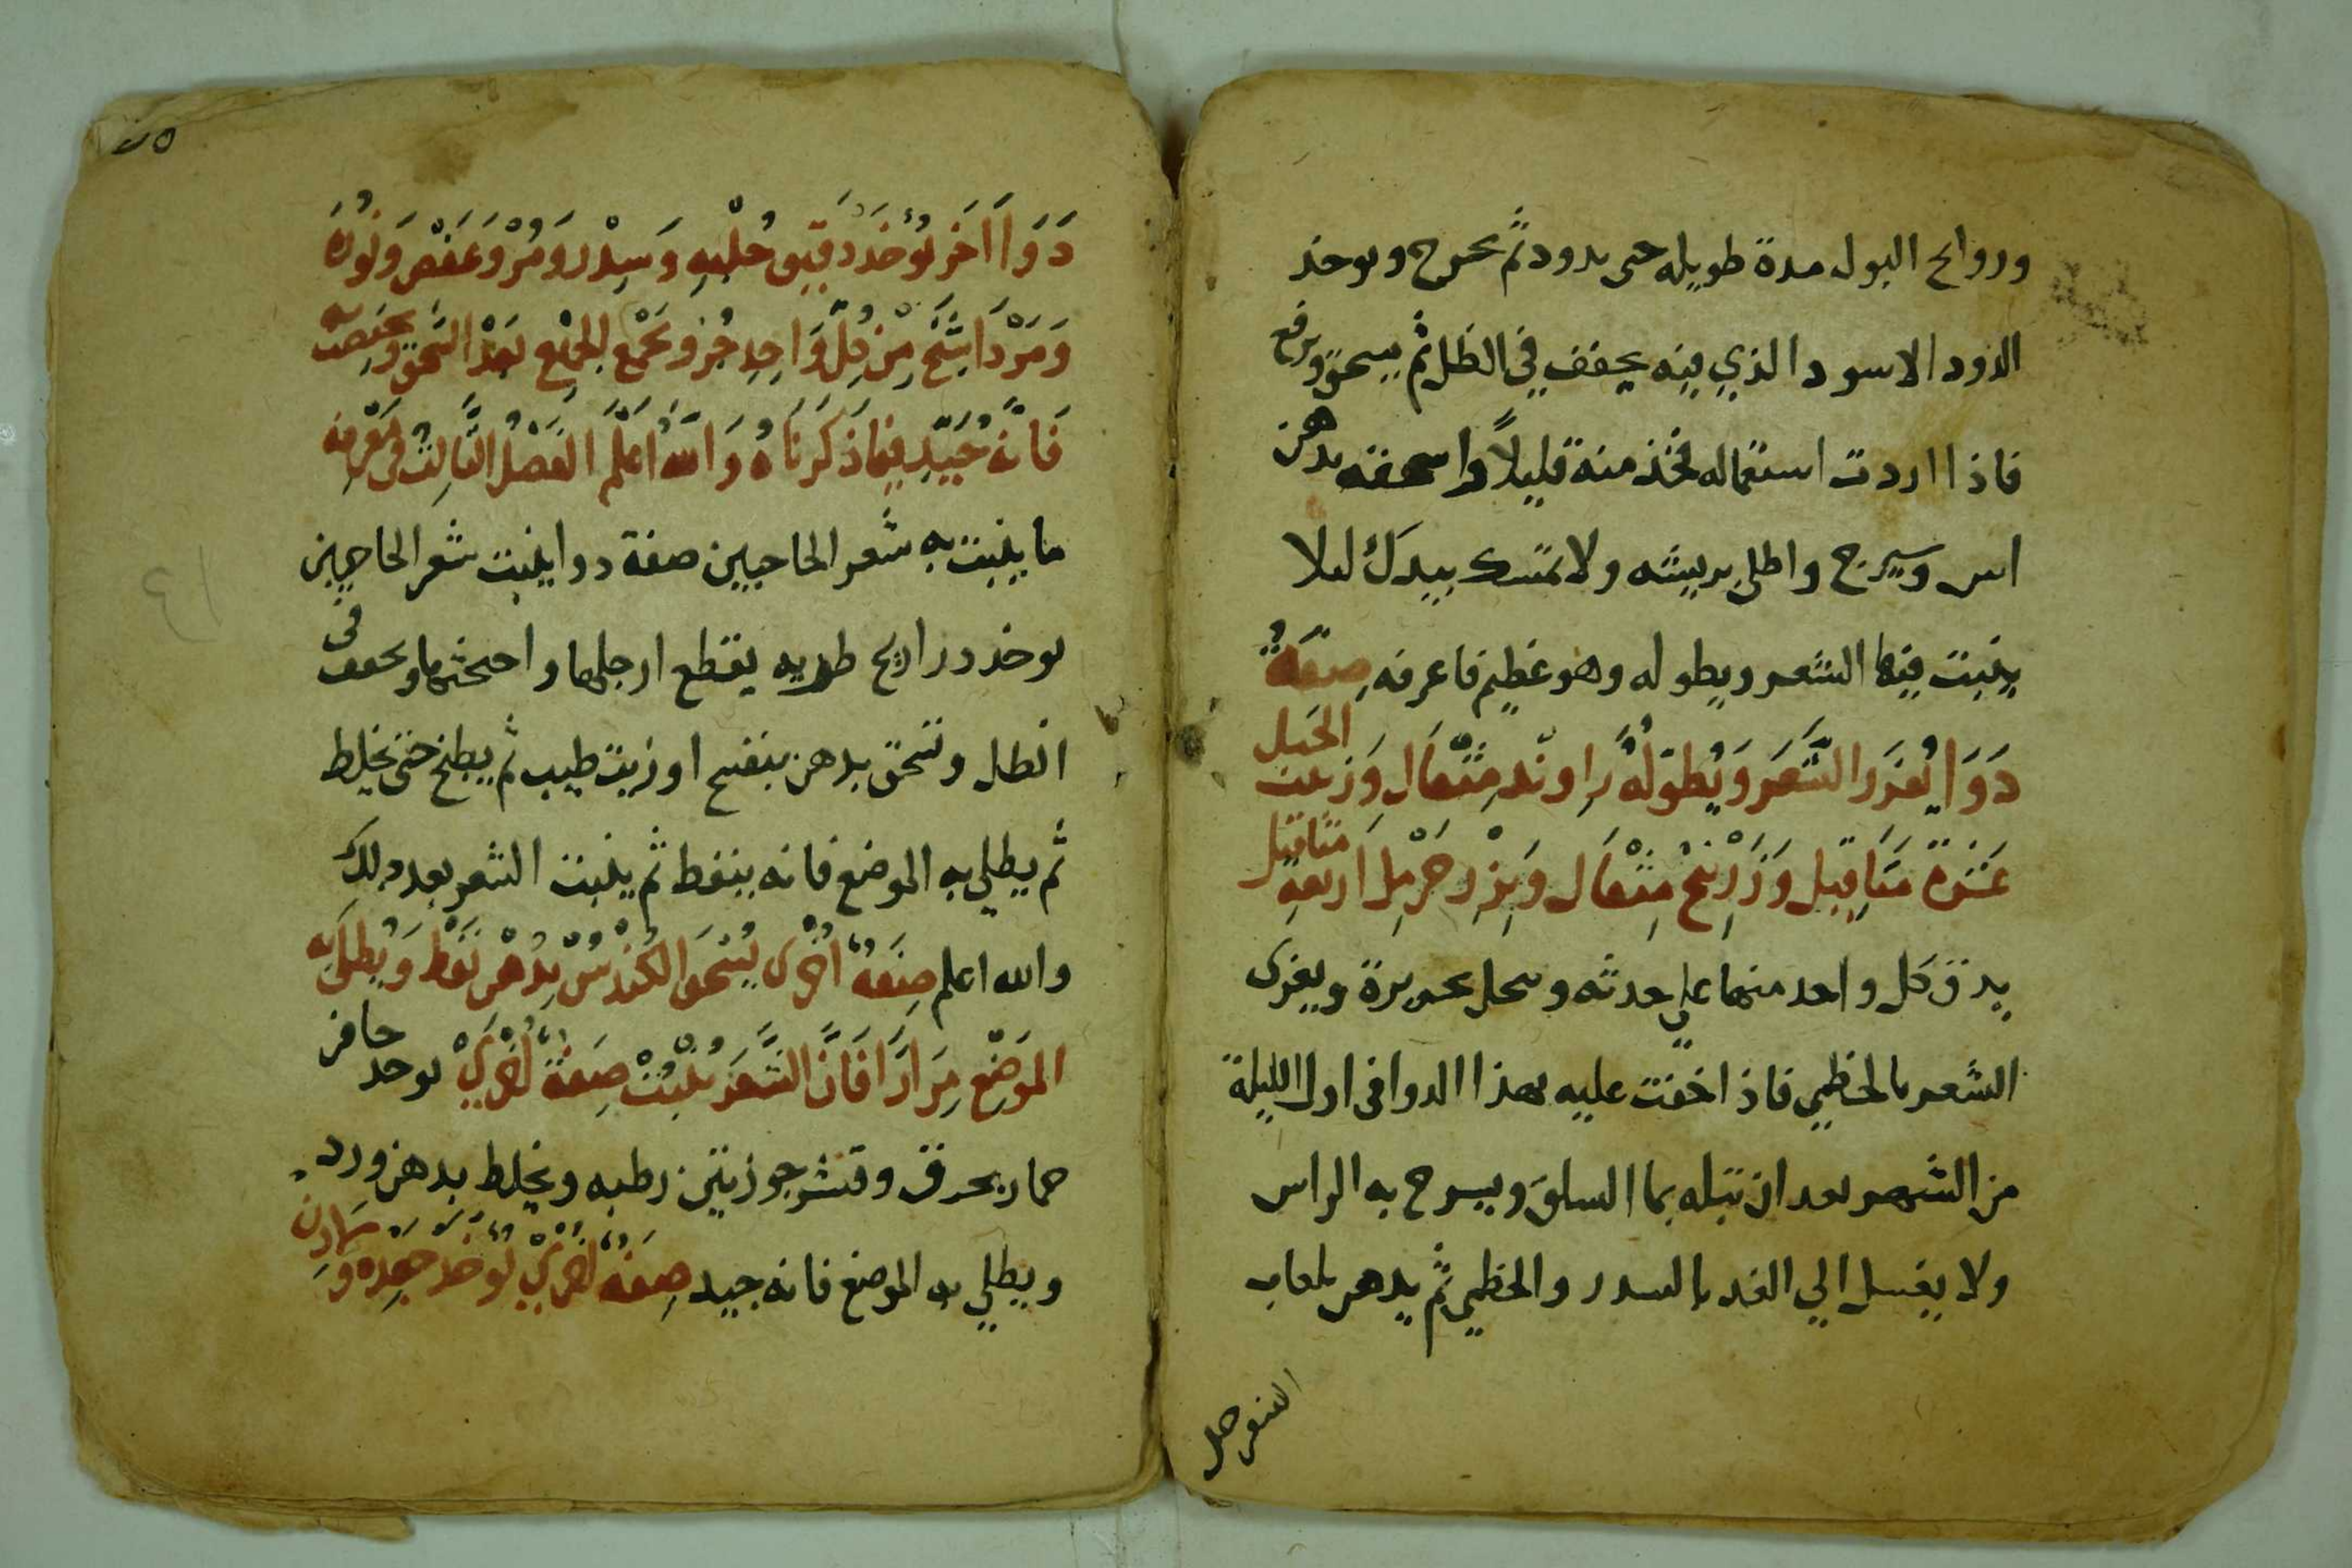 وروايح البول مدة طويله حتى يدود ثم يخرج ويوخذ
الدود الاسود الذي فيه يجفف في الظل ثم يسحق ويرفع
فاذا اردت استعماله فخذ منه قليلاً واسحقه بدهن
اس وسيرج واطلي بريشه ولا تمسك بيدك ليلا
ينبت فيها الشعر ويطوله وهو عظيم فاعرفه صِفَةُ
دَوَا يُغزر الشَّعَر وَيُطولهُ رَاوند مِثْقال وَزعت الحبل
عَشَرَة مثاقيل وَزَرْنيخ مثقال وَبِزر حَرْمل اربعة مثاقيل
يدق كل واحد منهما علي حدته وينخل بحريرة ويغزى
الشعر بالخطمي فاذا خفت عليه بهذا الدوا في اول الليلة
من الشهر بعد ان تبله بما السلق ويسرح به الراس
ولا يغسل الي الغد بالسدر والخطمي ثم يدهن بلعاب
السفرجل
٢٥
دَوَا اَخَر يُوخذ دَقيق حُلْبه وَسِدْر وَمُرْ وَعَفْص وَنُورَة
وَمَرْدَاسَنْج مِنْ كل وَاحِد جُز وَيُجْمَع الجمْيع بَعْد السَّحق وَيُخضب به
فَانه جُيّد فيما ذكَرنَاهُ وَالله اعْلَم الفَصْلُ الثَالِث في مَعْرِفة
ما ينبت به شعر الحاجبين صفة دوا ينبت شعر الحاجبين
يوخذ دراريح طريه يقطع ارجلها واجنحتها ويجفف في
الظل وتسحق بدهن بنفسج او زيت طيب ثم يطبخ حتى يخلط
ثم يطلي به الموضع فانه ينفط ثم ينبت الشعر بعد ذلك
والله اعلم صِفَة اُخْرى يُسْحق الكُنْدُسْ بِدُهْن نَفْط وَيُطلى به
المَوَضِع مِرَاراً فَانَّ الشَّعَر يُنْبت صِفَة اُخْرَيْ يوخذ حافر
حمار يحرق وقشر جوزتين رطبه ويخلط بدهن ورد
ويطلي به الموضع فانه جيد صِفَة اُخْرَيْ تُوخَذ جَعِدَة وَ